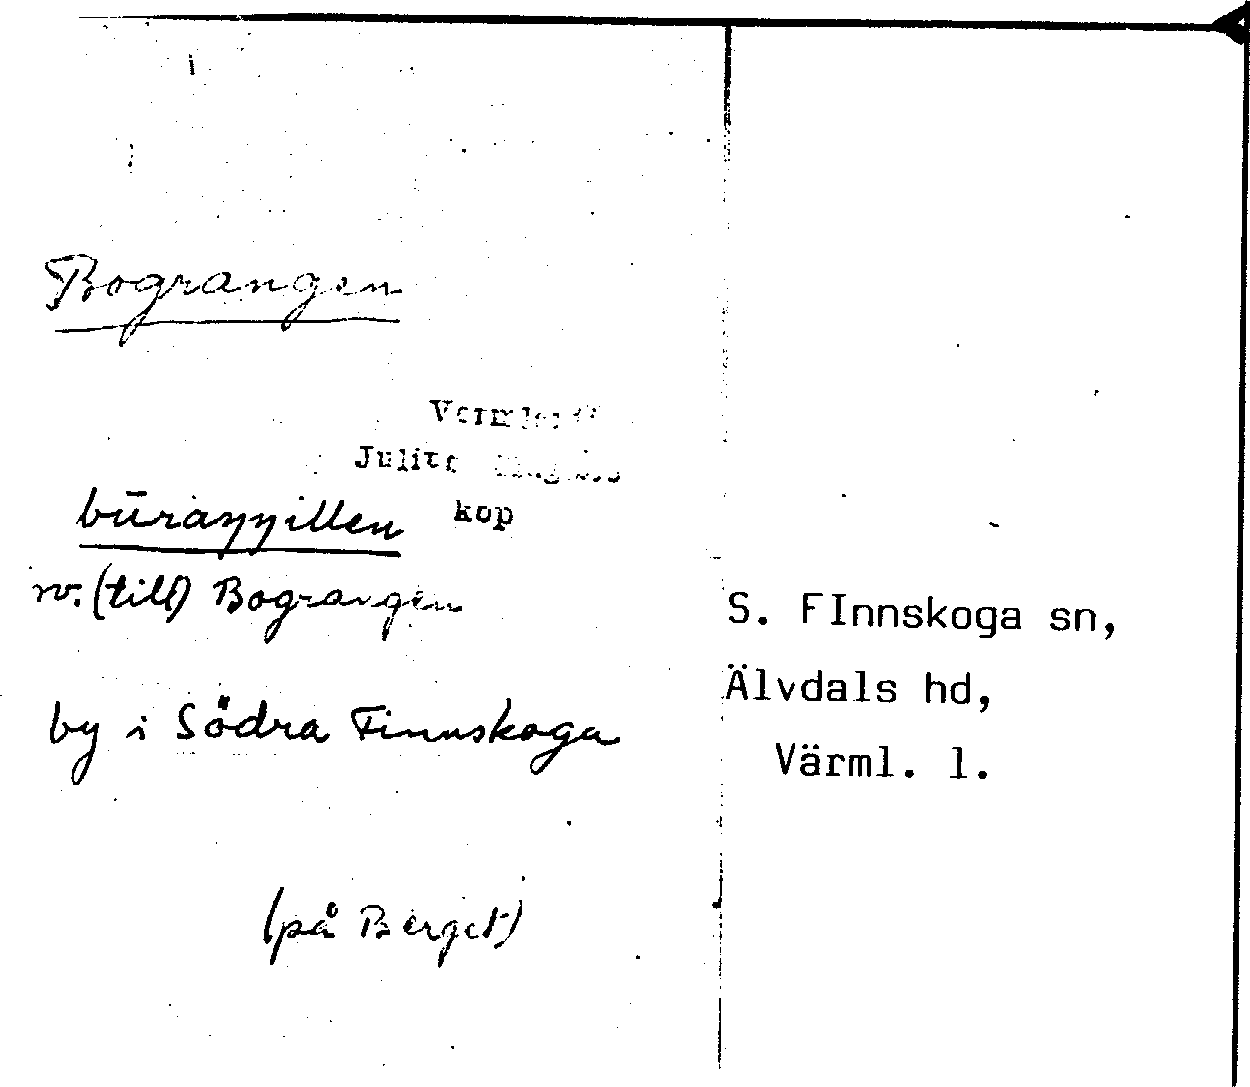 Bograngen
Julita
kop
būraŋŋillen
rv. (till) Bograngen
by i Södra Finnskoga
(på Berget)
S. FInnskoga sn,
Älvdals hd,
Värml. l.